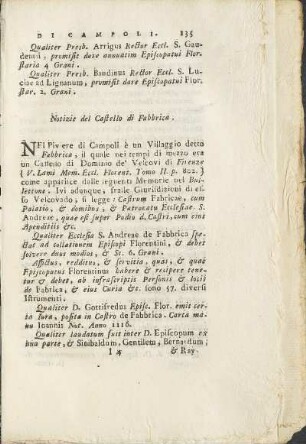 DI CAMPOLI. 135
Qualiter Presb. Arrigus Rector Eccl. S. Gau-
dentii, promisit dare annuatim Episcopatui Flor.
staria 4 Grani.
Qualiter Presb. Bandinus Rector Eccl. S. Lu-
ciæ ad Lignanum, promisit dare Episcopatui Flor.
star. 2. Grani.
Notizie del Castello di Fabbrica.
NEl Piviere di Campoli è un Villaggio detto
Fabbrica, il quale nei tempi di mezzo era
un Castello di Dominio de' Vescovi di Firenze
( V. Lami Mem. Eccl. Florent. Tomo II. p. 802. )
come apparisce dalle seguenti Memorie nel Bul-
lettone. Ivi adunque, fralle Giurisdizioni di es-
so Vescovado, si legge: Castrum Fabricae, cum
Palatio, & domibus, & Patronatu Ecclesiae S.
Andreae, quae est super Podio d. Castri, cum suis
Apenditiis &c.
Qualiter Ecclesia S. Andreae de Fabbrica spe-
ctat ad collationem Episcopi Florentini, & debet
solvere duos modios, & St. 6. Grani.
Affictus, redditus, & servitia, quae, & quas
Episcopatus Florentinus habere & recipere tene-
tur & debet, ab infrascriptis Personis & locis
de Fabrica, & eius Curia &c. sono 57. diversi
Istrumenti.
Qualiter D. Gottifredus Episc. Flor. emit cer-
ta Iura, posita in Castro de Fabbrica. Carta ma-
nu Ioannis Not. Anno 1116.
Qualiter laudatum fuit inter D. Episcopum ex
una parte, & Sinibaldum, Gentilem, Bernardum,
I 4 & Ray-